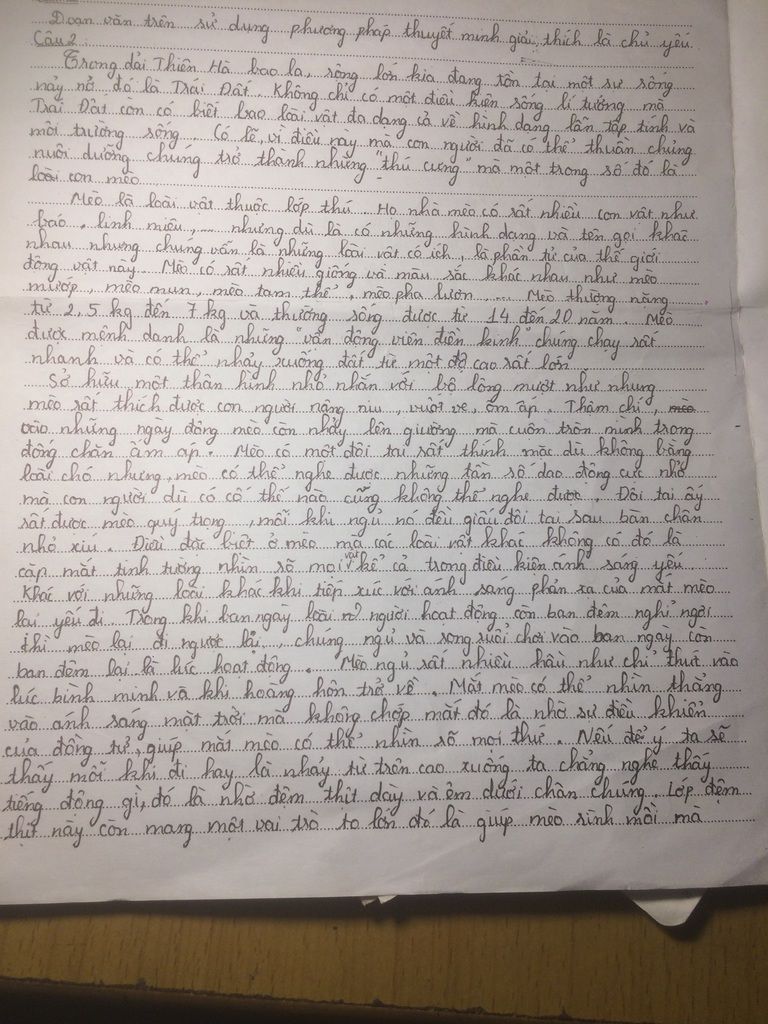 Đoạn văn trên sử dụng phương pháp thuyết minh giải thích là chủ yếu
Câu 2:
Trong dải Thiên Hà bao la, rộng lớn kia đang tồn tại một sự sống
nảy nở đó là Trái Đất. Không chỉ có một điều kiện sống lí tưởng mà
Trái Đất còn có biết bao loài vật đa dạng cả về hình dạng lẫn tập tính và
môi trường sống. Có lẽ, vì điều này mà con người đã có thể thuần chủng
nuôi dưỡng chúng trở thành những "thú cưng" mà một trong số đó là
loài con mèo.
Mèo là loài vật thuộc lớp thú. Họ nhà mèo có rất nhiều con vật như
báo, linh miêu,... nhưng dù là có những hình dạng và tên gọi khác
nhau nhưng chúng vẫn là những loài vật có ích, là phần tử của thế giới
động vật này. Mèo có rất nhiều giống và màu sắc khác nhau như mèo
mướp, mèo mun, mèo tam thể, mèo pha lườn.... Mèo thường nặng
từ 2,5 kg đến 7 kg và thường sống được từ 14 đến 20 năm. Mèo
được mệnh danh là những "vận động viên điền kinh" chúng chạy rất
nhanh và có thể nhảy xuống đất từ một độ cao rất lớn
Sở hữu một thân hình nhỏ nhắn với bộ lông mượt như nhung
mèo rất thích được con người nâng niu, vuốt ve, ôm ấp. Thậm chí, mèo
vào những ngày đông mèo còn nhảy lên giường mà cuộn tròn mình trong
đống chăn ấm áp. Mèo có một đôi tai rất thính mặc dù không bằng
loài chó nhưng mèo có thể nghe được những tần số dao động cực nhỏ
mà con người dù có cố thế nào cũng không thể nghe được. Đôi tai ấy
rất được mèo quý trọng, mỗi khi ngủ nó đều giấu đôi tai sau bàn chân
nhỏ xíu. Điều đặc biệt ở mèo mà các loài vật khác không có đó là
cặp mắt tinh tường nhìn rõ mọi vật kể cả trong điều kiện ánh sáng yếu.
Khác với những loài khác khi tiếp xúc với ánh sáng phản xạ của mắt mèo
lại yếu đi. Trong khi ban ngày loài người hoạt động còn ban đêm nghỉ ngơi
thì mèo lại đi ngược lại, chúng ngủ và rong ruổi chơi vào ban ngày còn
ban đêm lại là lúc hoạt động. Mèo ngủ rất nhiều hầu như chỉ thức vào
lúc bình minh và khi hoàng hôn trở về. Mắt mèo có thể nhìn thẳng
vào ánh sáng mặt trời mà không chớp mắt đó là nhờ sự điều khiển
của đồng tử, giúp mắt mèo có thể nhìn rõ mọi thứ. Nếu để ý ta sẽ
thấy mỗi khi đi hay là nhảy từ trên cao xuống ta chẳng nghe thấy
tiếng động gì, đó là nhờ đệm thịt dày và êm dưới chân chúng. Lớp đệm
thịt này còn mang một vai trò to lớn đó là giúp mèo rình mồi mà